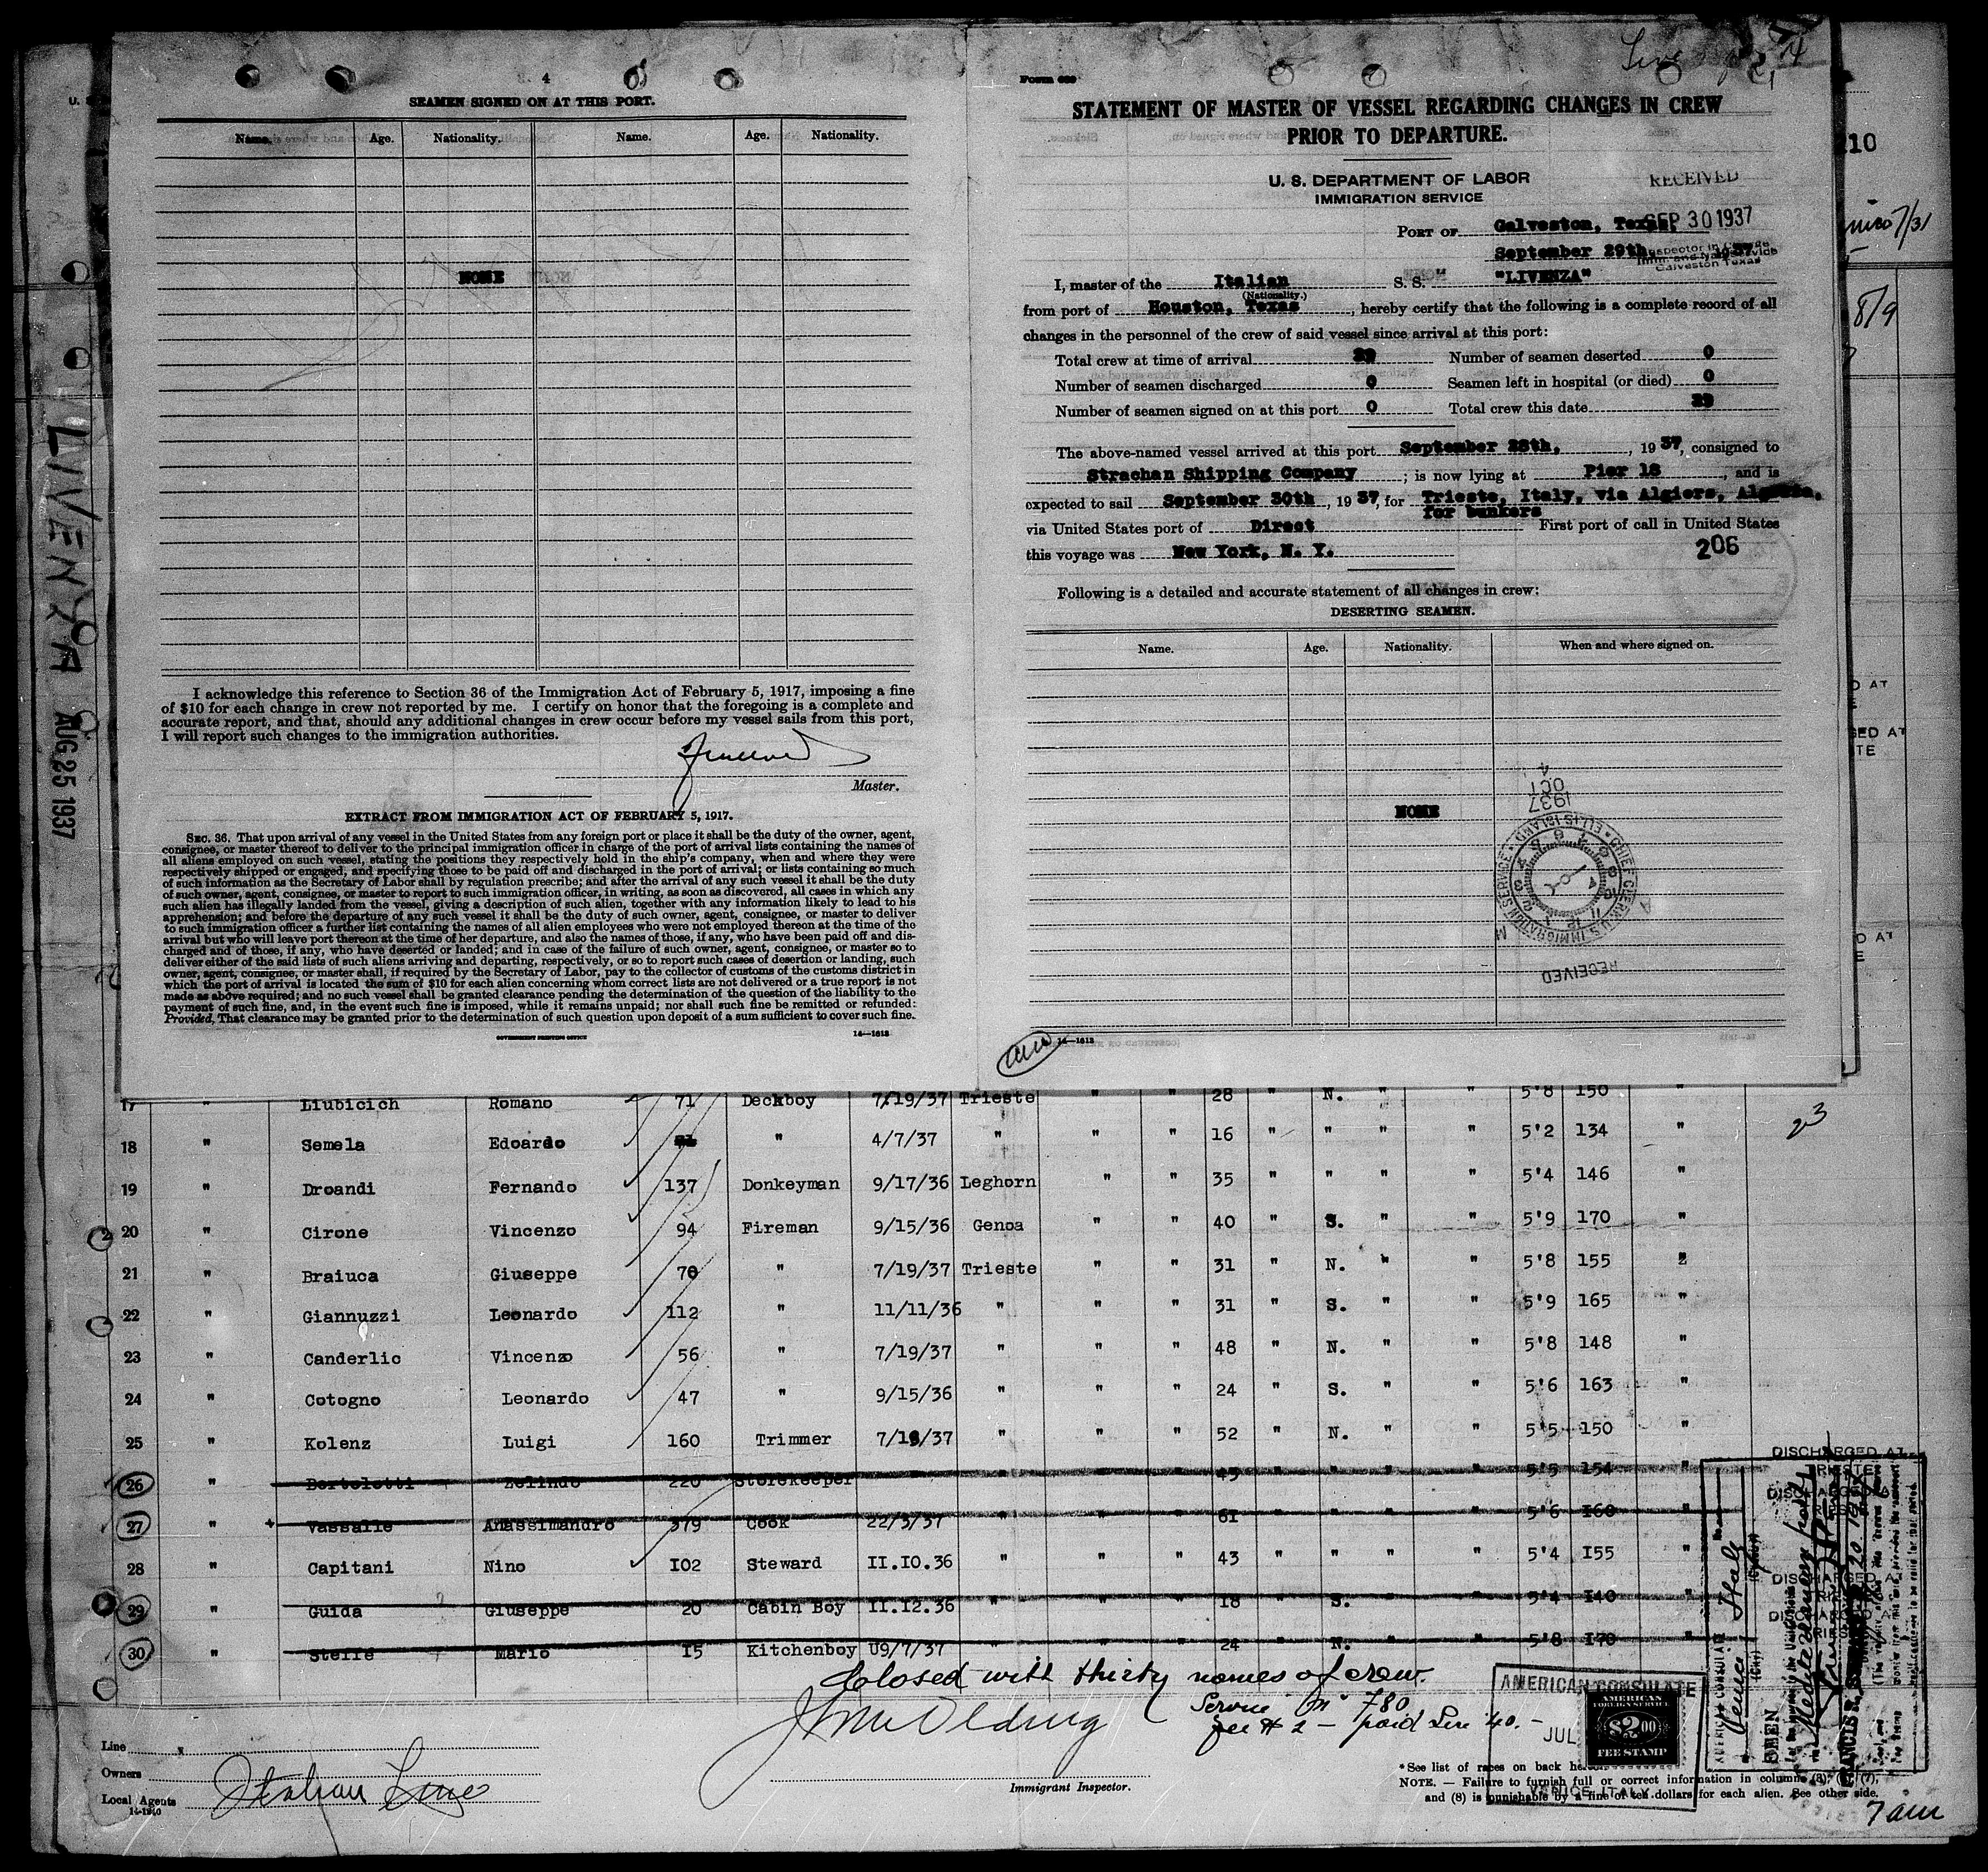 4
SEAMEN SIGNED ON AT THIS PORT.
Name. Age. Nationality. Name. Age. Nationality.
NONE
I acknowledge this reference to Section 36 of the Immigration Act of February 5, 1917, imposing a fine
of $10 for each change in crew not reported by me. I certify on honor that the foregoing is a complete and
accurate report, and that, should any additional changes in crew occur before my vessel sails from this port,
I will report such changes to the immigration authorities.
Master.
EXTRACT FROM IMMIGRATION ACT OF FEBRUARY 5, 1917.
SEC. 36. That upon arrival of any vessel in the United States from any foreign port or place it shall be the duty of the owner, agent,
consignee, or master thereof to deliver to the principal immigration officer in charge of the port of arrival lists containing the names of
all aliens employed on such vessel, stating the positions they respectively hold in the ship's company, when and where they were
respectively shipped or engaged, and specifying those to be paid off and discharged in the port of arrival; or lists containing so much
of such information as the Secretary of Labor shall by regulation prescribe; and after the arrival of any such vessel it shall be the duty
of such owner, agent, consignee, or master to report to such immigration officer, in writing, as soon as discovered, all cases in which any
such alien has illegally landed from the vessel, giving a description of such alien, together with any information likely to lead to his
apprehension; and before the departure of any such vessel it shall be the duty of such owner, agent, consignee, or master to deliver
to such immigration officer a further list containing the names of all alien employees who were not employed thereon at the time of the
arrival but who will leave port thereon at the time of her departure, and also the names of those, if any, who have been paid off and dis-
charged and of those, if any, who have deserted or landed; and in case of the failure of such owner, agent, consignee, or master so to
deliver either of the said lists of such aliens arriving and departing, respectively, or so to report such cases of desertion or landing, such
owner, agent, consignee, or master shall, if required by the Secretary of Labor, pay to the collector of customs of the customs district in
which the port of arrival is located the sum of $10 for each alien concerning whom correct lists are not delivered or a true report is not
made as above required; and no such vessel shall be granted clearance pending the determination of the question of the liability to the
payment of such fine, and, in the event such fine is imposed, while it remains unpaid; nor shall such fine be remitted or refunded:
Provided, That clearance may be granted prior to the determination of such question upon deposit of a sum sufficient to cover such fine.
GOVERNMENT PRINTING OFFICE 14—1613
Form 689
STATEMENT OF MASTER OF VESSEL REGARDING CHANGES IN CREW
PRIOR TO DEPARTURE.
U. S. DEPARTMENT OF LABOR
IMMIGRATION SERVICE
RECEIVED
SEP 30 1937
Inspector in Charge
Imm. and Nat. Service
Galveston Texas
PORT OF Galveston, Texas,
September 29th, 1937
I, master of the Italian S. S. "LIVENZA"
(Nationality.)
from port of Houston, Texas, hereby certify that the following is a complete record of all
changes in the personnel of the crew of said vessel since arrival at this port:
Total crew at time of arrival Number of seamen deserted 0
Number of seamen discharged 0 Seamen left in hospital (or died) 0
Number of seamen signed on at this port 0 Total crew this date
The above-named vessel arrived at this port September 28th, 1937, consigned to
Strachan Shipping Company; is now lying at Pier 18, and is
expected to sail September 30th, 1937, for Trieste, Italy, via Algiers, Algeria,
for bunkers
via United States port of Direct First port of call in United States
this voyage was New York, N. Y.
206
Following is a detailed and accurate statement of all changes in crew:
DESERTING SEAMEN.
Name. Age. Nationality. When and where signed on.
NONE
OCT 4 1937
CHIEF CLERK U.S. IMMIGRATION SERVICE ELLIS ISLAND
RECEIVED
14—1613
LIVENZA AUG 25 1937
210
7/31
8/9
17 " Liubicich Romano 71 Deckboy 7/19/37 Trieste " " 28 " N. " " 5'8 150 "
23
18 " Semela Edoardo " 4/7/37 " " " 16 " " " " 5'2 134 "
19 " Droandi Fernando 137 Donkeyman 9/17/36 Leghorn " " 35 " " " " 5'4 146 "
20 " Cirone Vincenzo 94 Fireman 9/15/36 Genoa " " 40 " S. " " 5'9 170 "
21 " Braiuca Giuseppe 70 " 7/19/37 Trieste " " 31 " N. " " 5'8 155 "
22 " Giannuzzi Leonardo 112 " 11/11/36 " " " 31 " S. " " 5'9 165 "
23 " Canderlic Vincenzo 56 " 7/19/37 " " " 48 " N. " " 5'8 148 "
24 " Cotogno Leonardo 47 " 9/15/36 " " " 24 " S. " " 5'6 163 "
25 " Kolenz Luigi 160 Trimmer 7/19/37 " " 52 " N. " " 5'5 150 "
26 " Bortoletti Zelindo 220 Storekeeper " " " " 45 " " " " 5'5 154 "
27 " Vassalle Anassimandro 379 Cook 22/3/37 " " " 61 " " " " 5'6 I60 "
28 " Capitani Nino I02 Steward II.I0.36 " " " 43 " " " " 5'4 I55 "
29 " Guida Giuseppe 20 Cabin Boy II.12.36 " " " 18 " S. " " 5'4 I40 "
30 " Steffé Mario I5 Kitchenboy U9/7/37 " " " 24 " N. " " 5'8 I70 "
DISCHARGED AT
TRIESTE
Closed with thirty names of crew.
Service No 780
fee $ 2 — paid Lire 40.—
Line
Owners
Local Agents Italian Line
14-1240
Immigrant Inspector.
AMERICAN CONSULATE
JUL
VENICE, ITALY.
AMERICAN
FOREIGN SERVICE
$2.00
FEE STAMP
AMERICAN CONSULATE
Venice Italy
SEEN
*See list of races on back
NOTE. — Failure to furnish full or correct information in columns (3), (7),
and (8) is punishable by a fine of ten dollars for each alien. See other side.
7 am